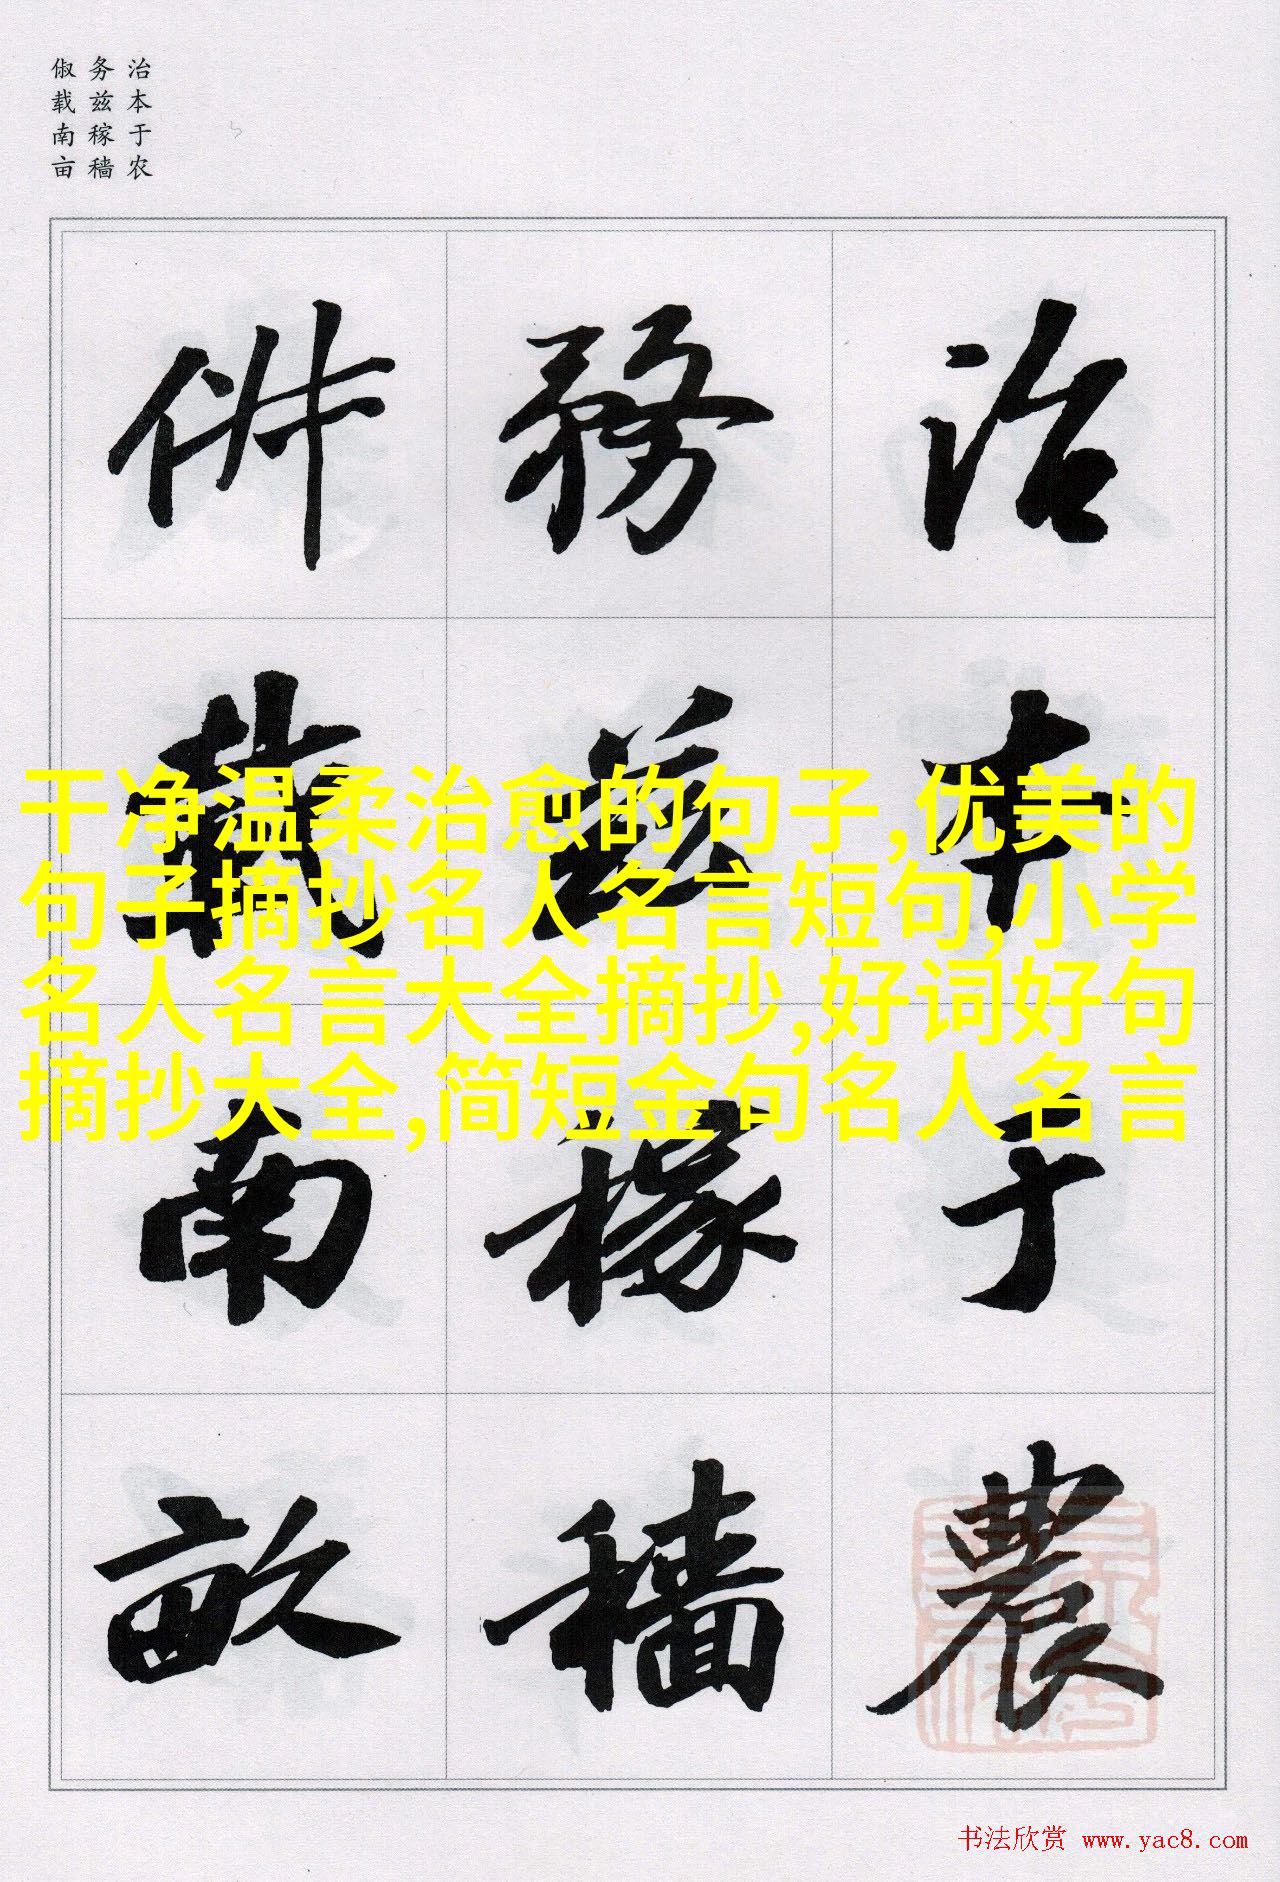 治本于农
务兹稼穑
俶载南亩
治本于農
務茲稼穡
俶載南畝
干净温柔治愈的句子,优美的
句子摘抄名人名言短句,小学
名人名言大全摘抄,好词好句
摘抄大全,简短金句名人名言
书法欣赏 www.yac8.com